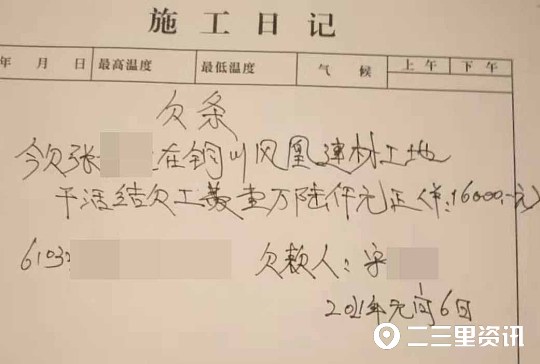 施工日记
年 月 日 最高温度 最低温度 气候 上午 下午
欠条
今欠张 在铜川凤凰建材工地
干活结欠工资壹万陆仟元正(羊:16000.-元)
6103 欠款人:宋
2021年元月6日
二三里资讯